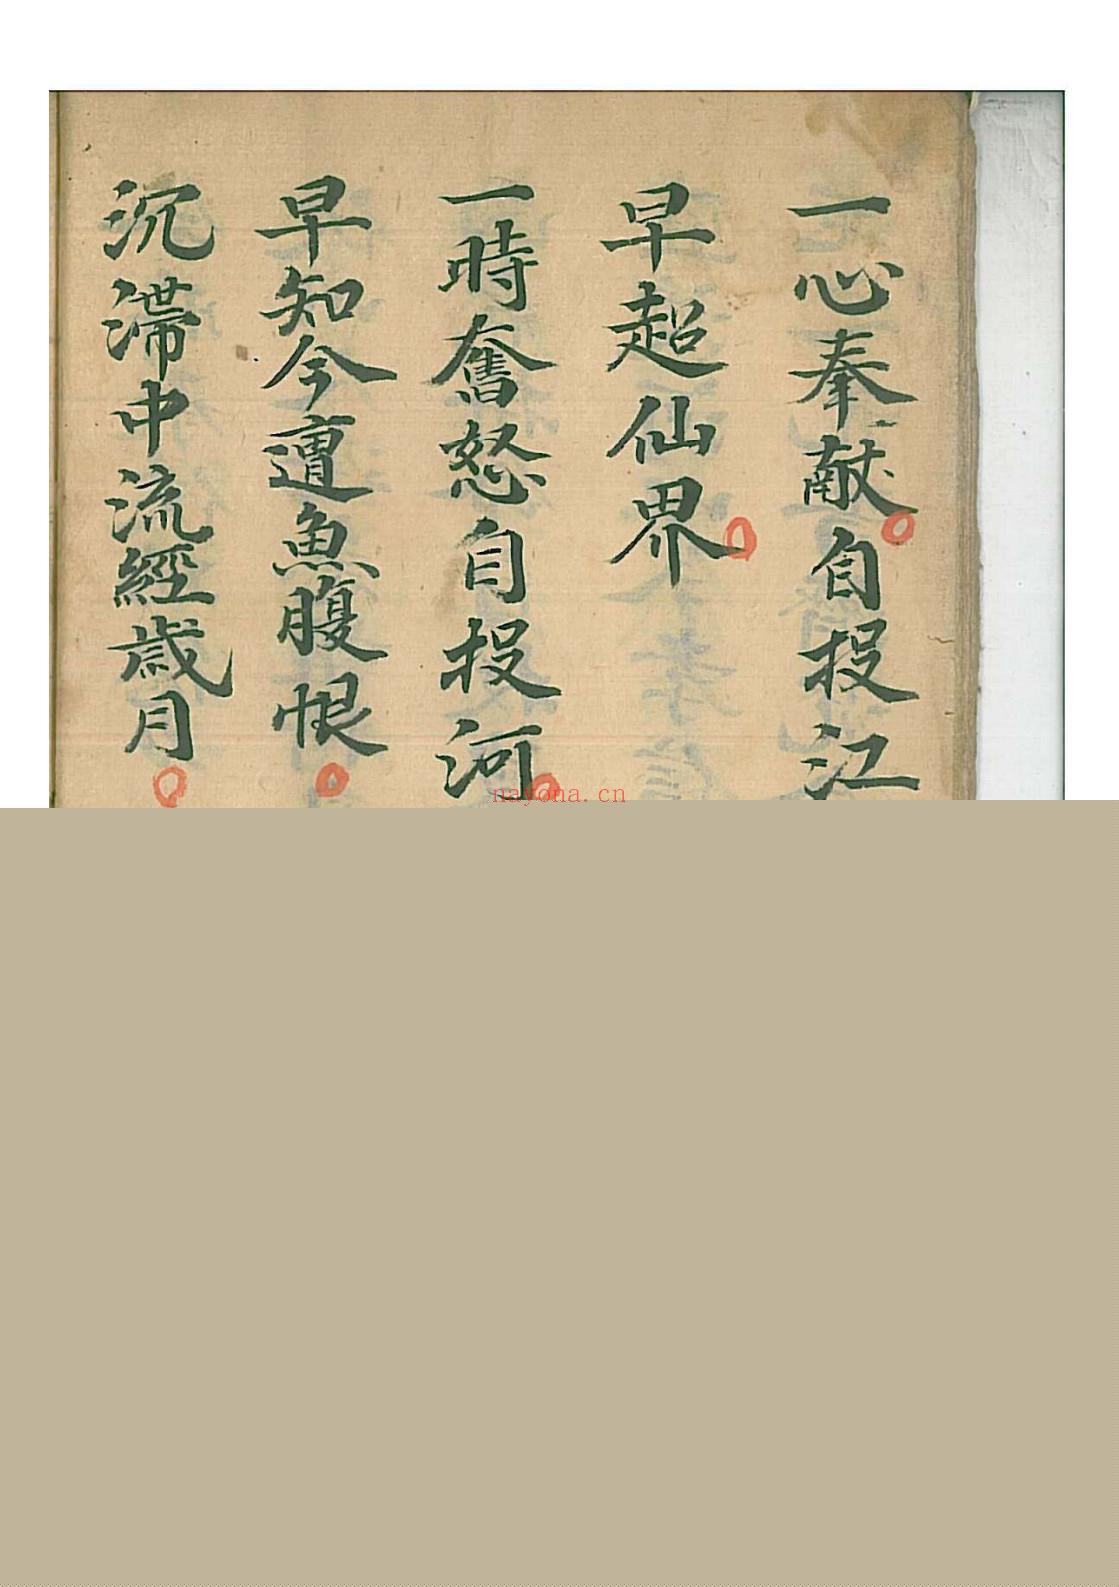 一心奉献自投江
早超仙界
一時奮怒自投河
早知今遭魚腹恨
沉滯中流經歲月
nayona.cn